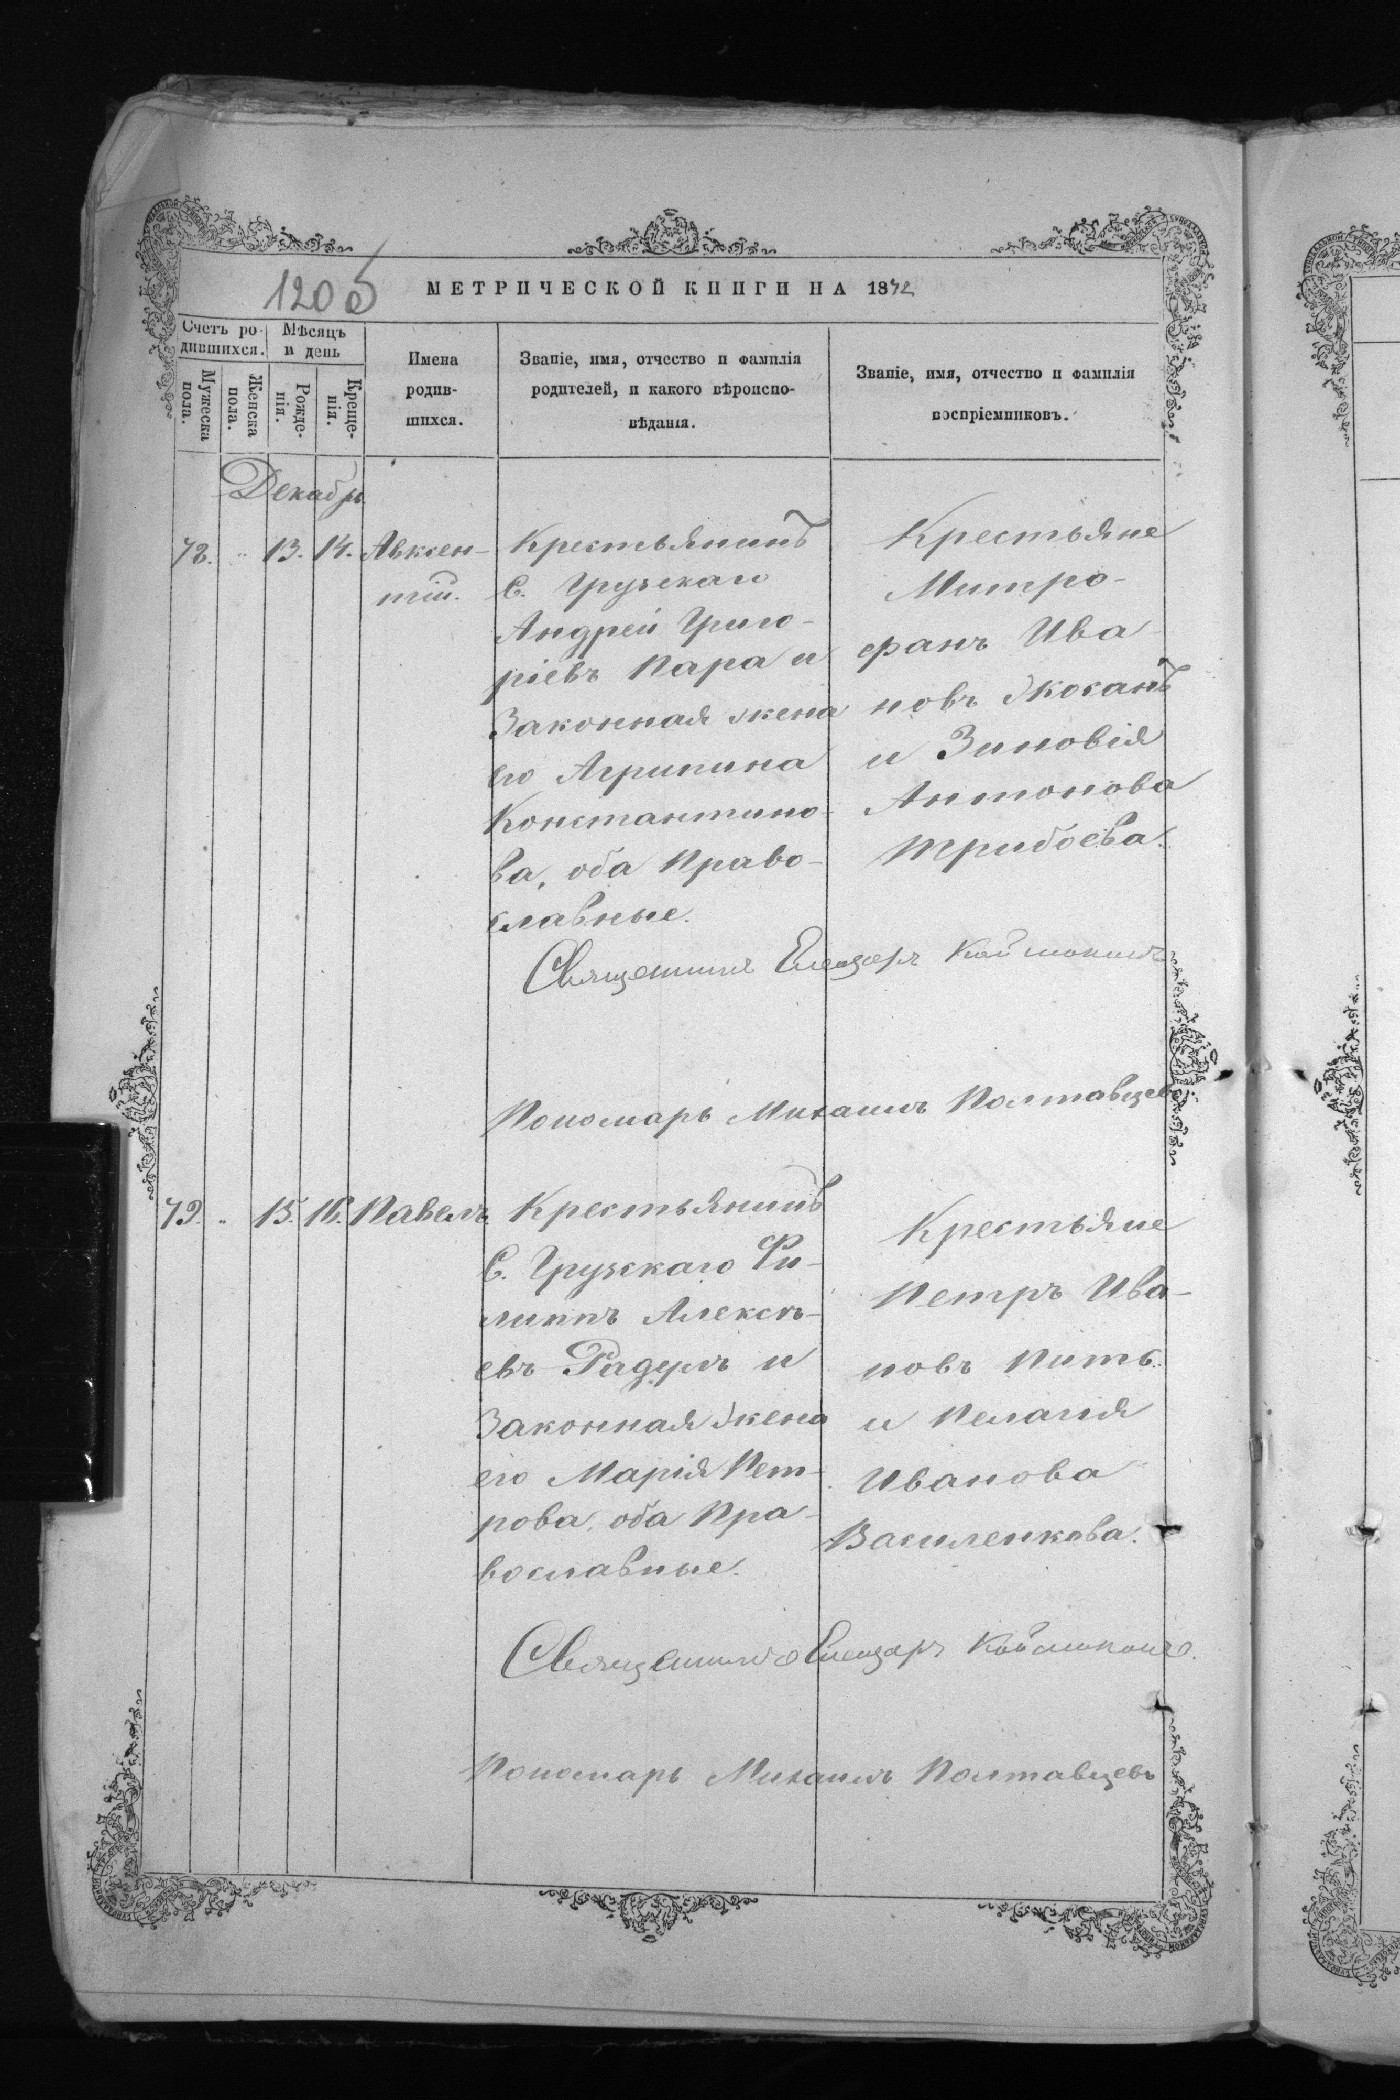 120 об
МЕТРИЧЕСКОЙ КНИГИ НА 1872
Счетъ ро-
дившихся.
Мѣсяцъ
и день
Мужеска
пола.
Женска
пола.
Рожде-
нія.
Креще-
нія.
Имена
родив-
шихся.
Званіе, имя, отчество и фамилія
родителей, и какого вѣроиспо-
вѣданія.
Званіе, имя, отчество и фамилія
воспріемниковъ.
Декабрь
78. „ 13. 14. Авксен-
тій.
Крестьянинъ
С. Грузскаго
Андрей Григо-
ріевъ Пара и
Законная жена
его Агрипина
Константино-
ва, оба Право-
славные.
Крестьяне
Митро-
фанъ Ива
новъ Жосанъ
и Зиновія
Антонова
Трибоева.
Священникъ Елеазаръ
Пономарь Михаилъ Полтавцевъ
79. „ 15. 16. Павелъ
Крестьянинъ
С. Грузскаго Фи-
липпъ Алексѣ-
евъ Радулъ и
Законная жена
его Марія Пет-
рова, оба Пра-
вославные.
Крестьяне
Петръ Ива-
новъ
и Пелагія
Иванова
Василенкова.
Священникъ Елеазаръ
Пономарь Михаилъ Полтавцевъ